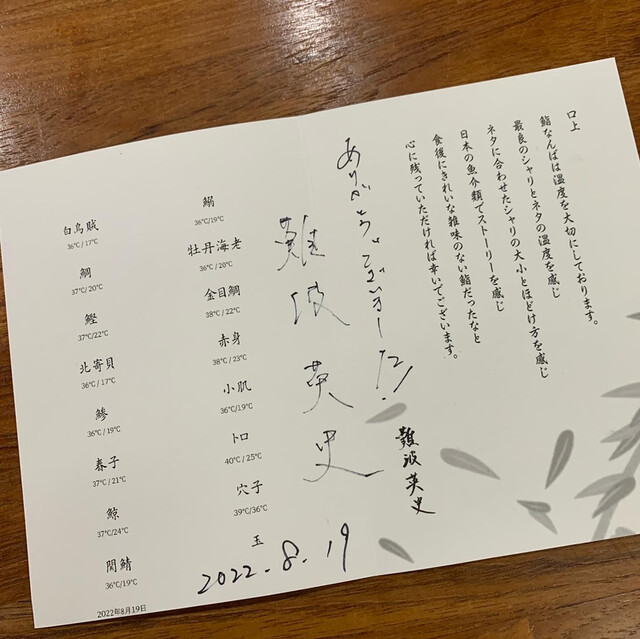 口上
鮨なんばは温度を大切にしております。
最良のシャリとネタの温度を感じ
ネタに合わせたシャリの大小とほどけ方を感じ
日本の魚介類でストーリーを感じ
食後にきれいな雑味のない鮨だったなと
心に残っていただければ幸いでございます。
難波英史
ありがとうございました!
難波英史
2022.8.19
鰯
36℃/19℃
牡丹海老
36℃/20℃
金目鯛
38℃/22℃
赤身
38℃/23℃
小肌
36℃/19℃
トロ
40℃/25℃
穴子
39℃/36℃
玉
白烏賊
36℃/17℃
鯛
37℃/20℃
鰹
37℃/22℃
北寄貝
36℃/17℃
鯵
36℃/19℃
春子
37℃/21℃
鯨
37℃/24℃
関鯖
36℃/19℃
2022年8月19日